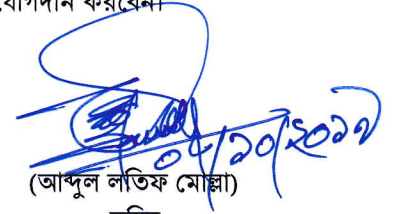 যোগদান করবেন।
০৮/১০/২০১৭
(আব্দুল লতিফ মোল্লা)
সচিব